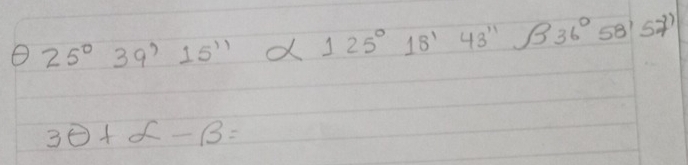 θ 25° 39' 15'' α 125° 18' 43'' β 36° 58' 57''
3θ + α - β =